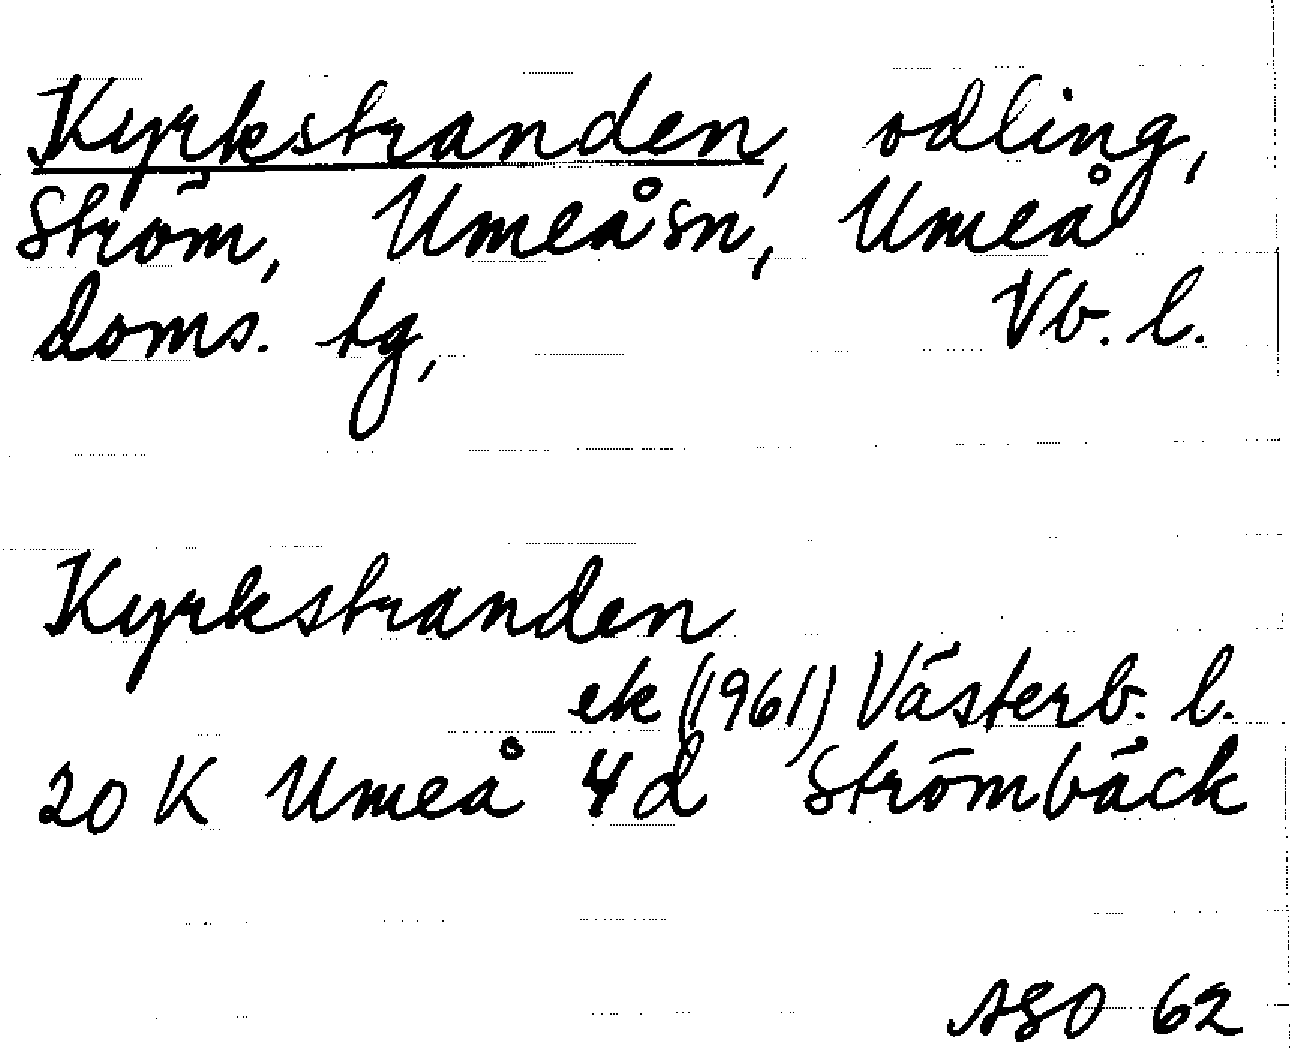 Kyrkstranden, odling,
Ström, Umeå sn, Umeå
doms. tg, Vb. l.
Kyrkstranden
ek (1961) Västerb. l.
20 K Umeå 4d Strömbäck
ASO 62